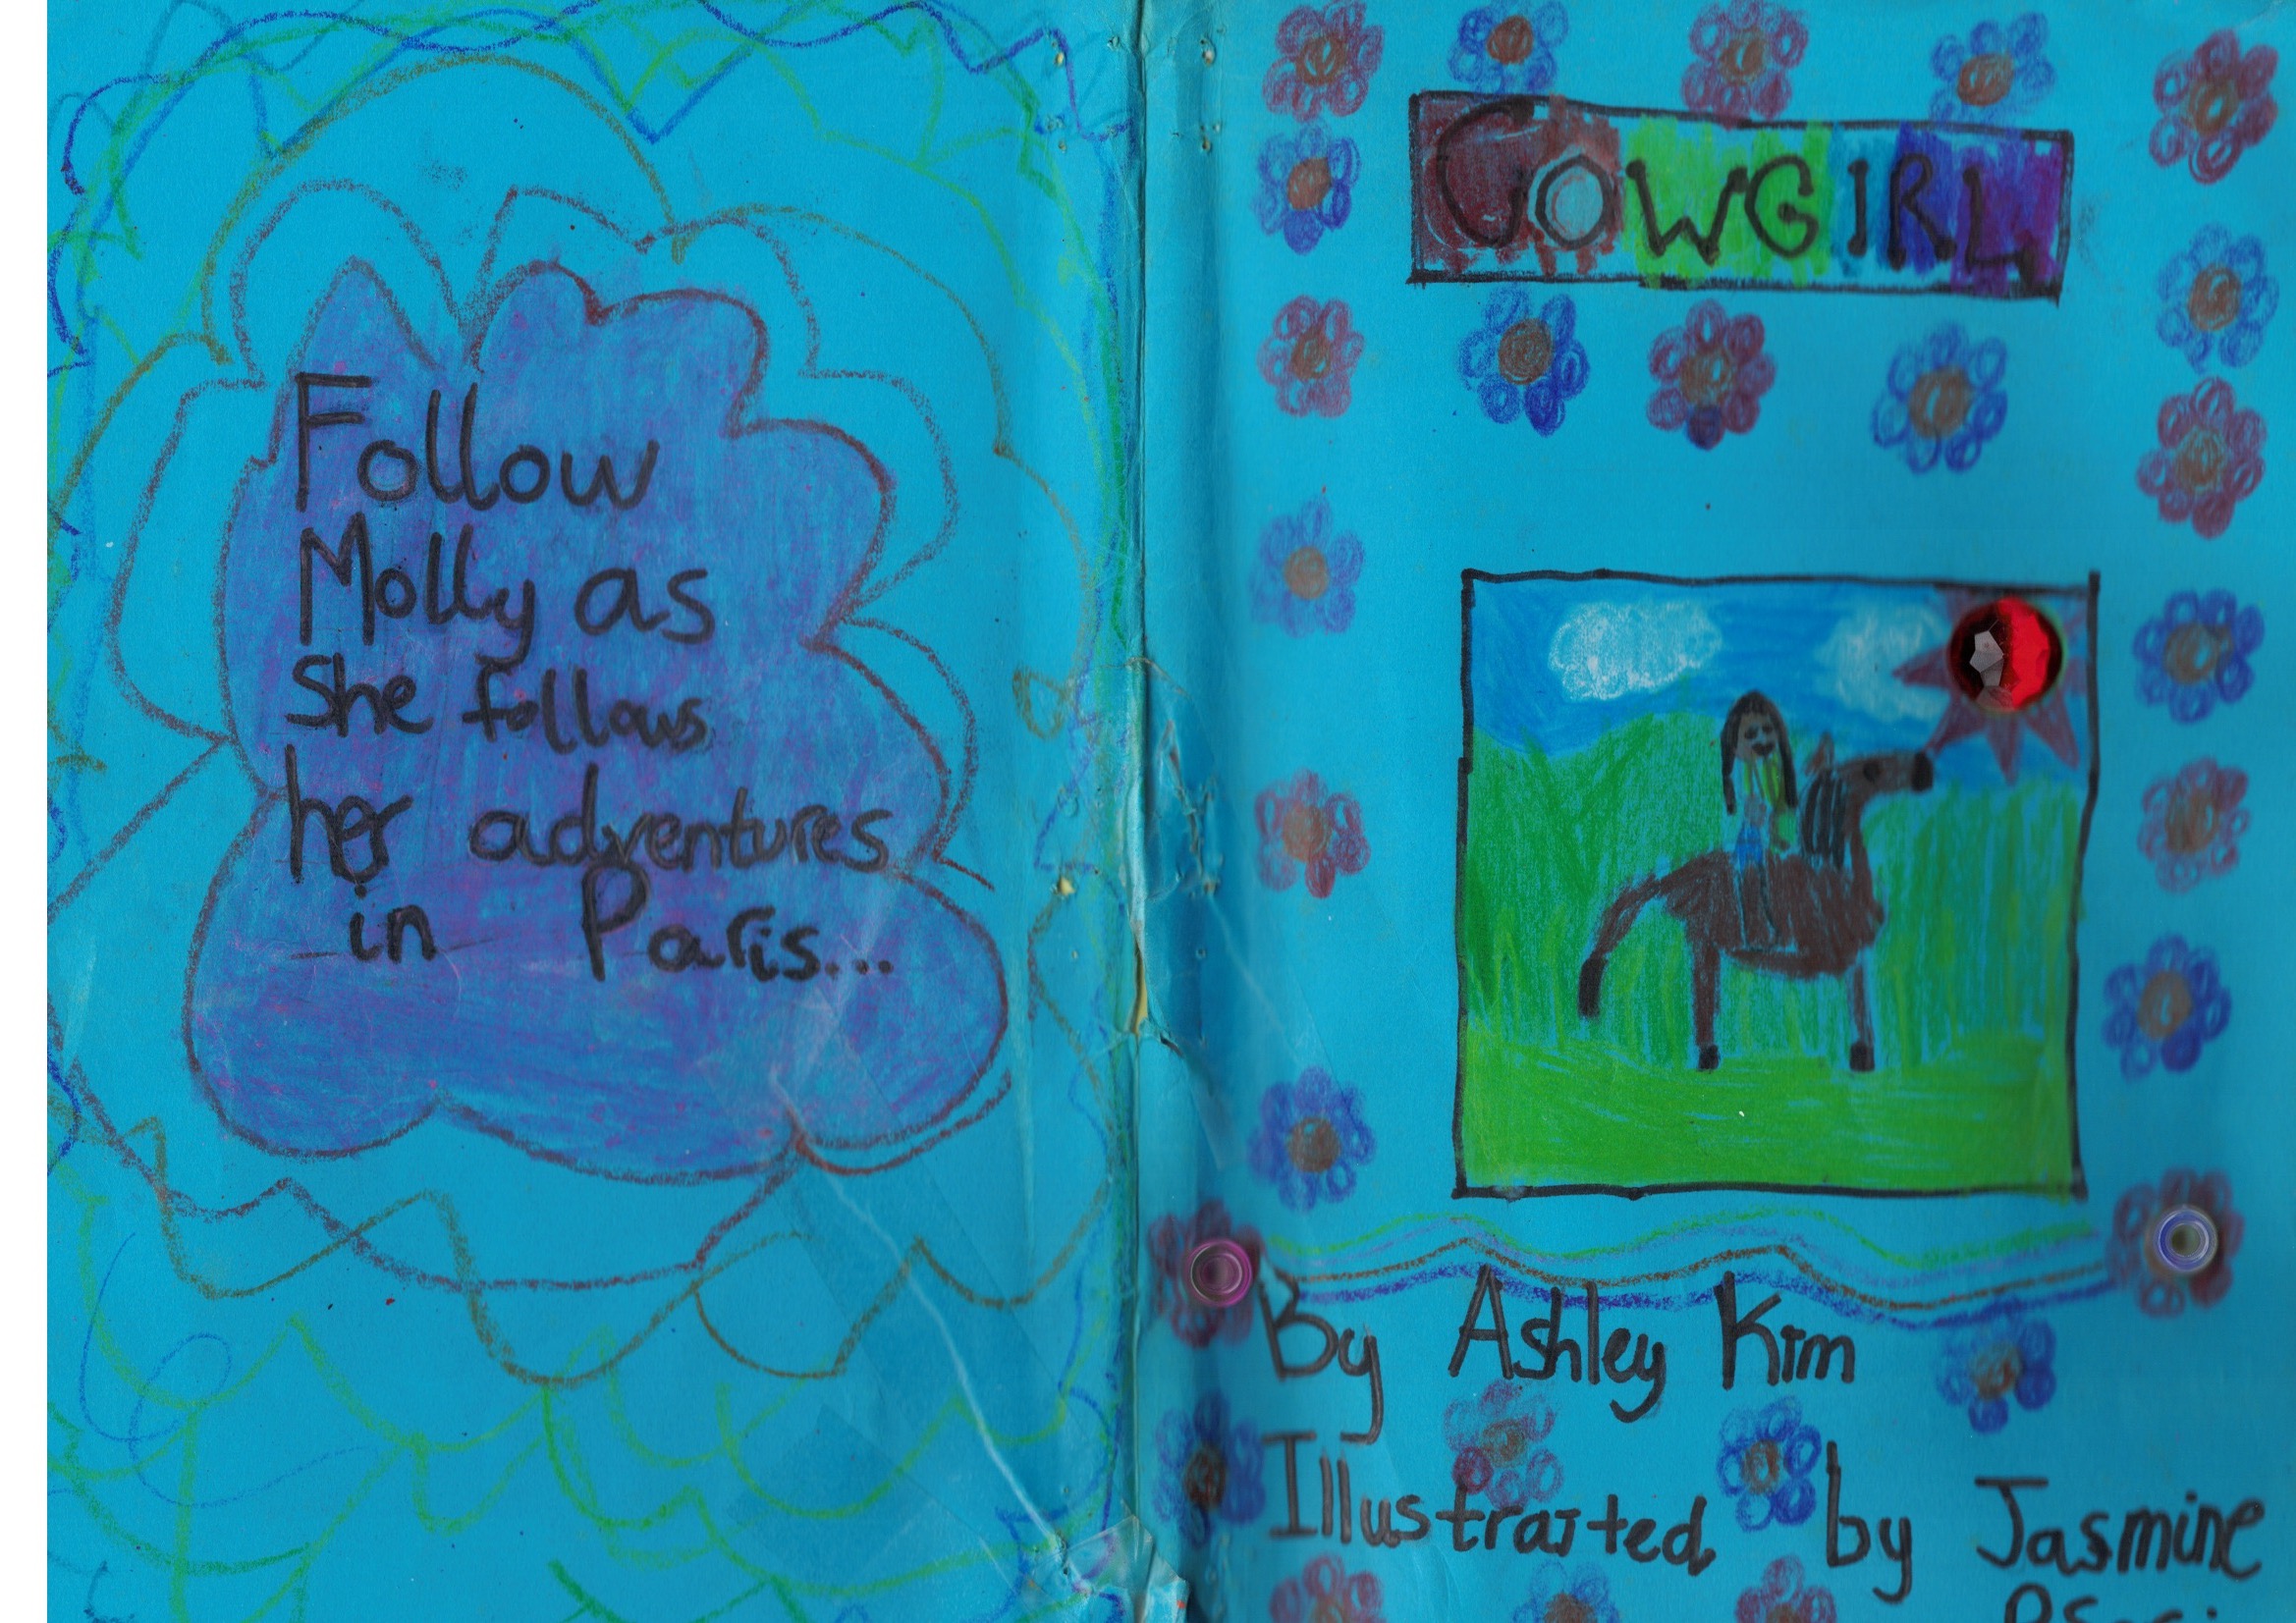 Follow
Molly as
she follows
her adventures
in Paris...
COWGIRL
By Ashley Kim
Illustraited by Jasmine